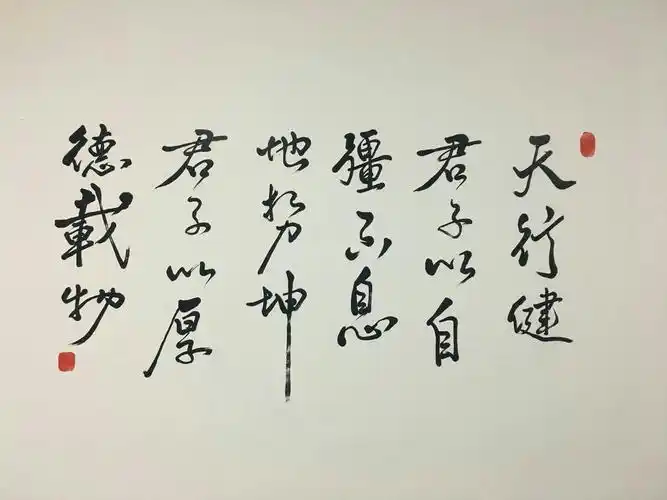 天行健
君子以自
疆不息
地势坤
君子以厚
德載物